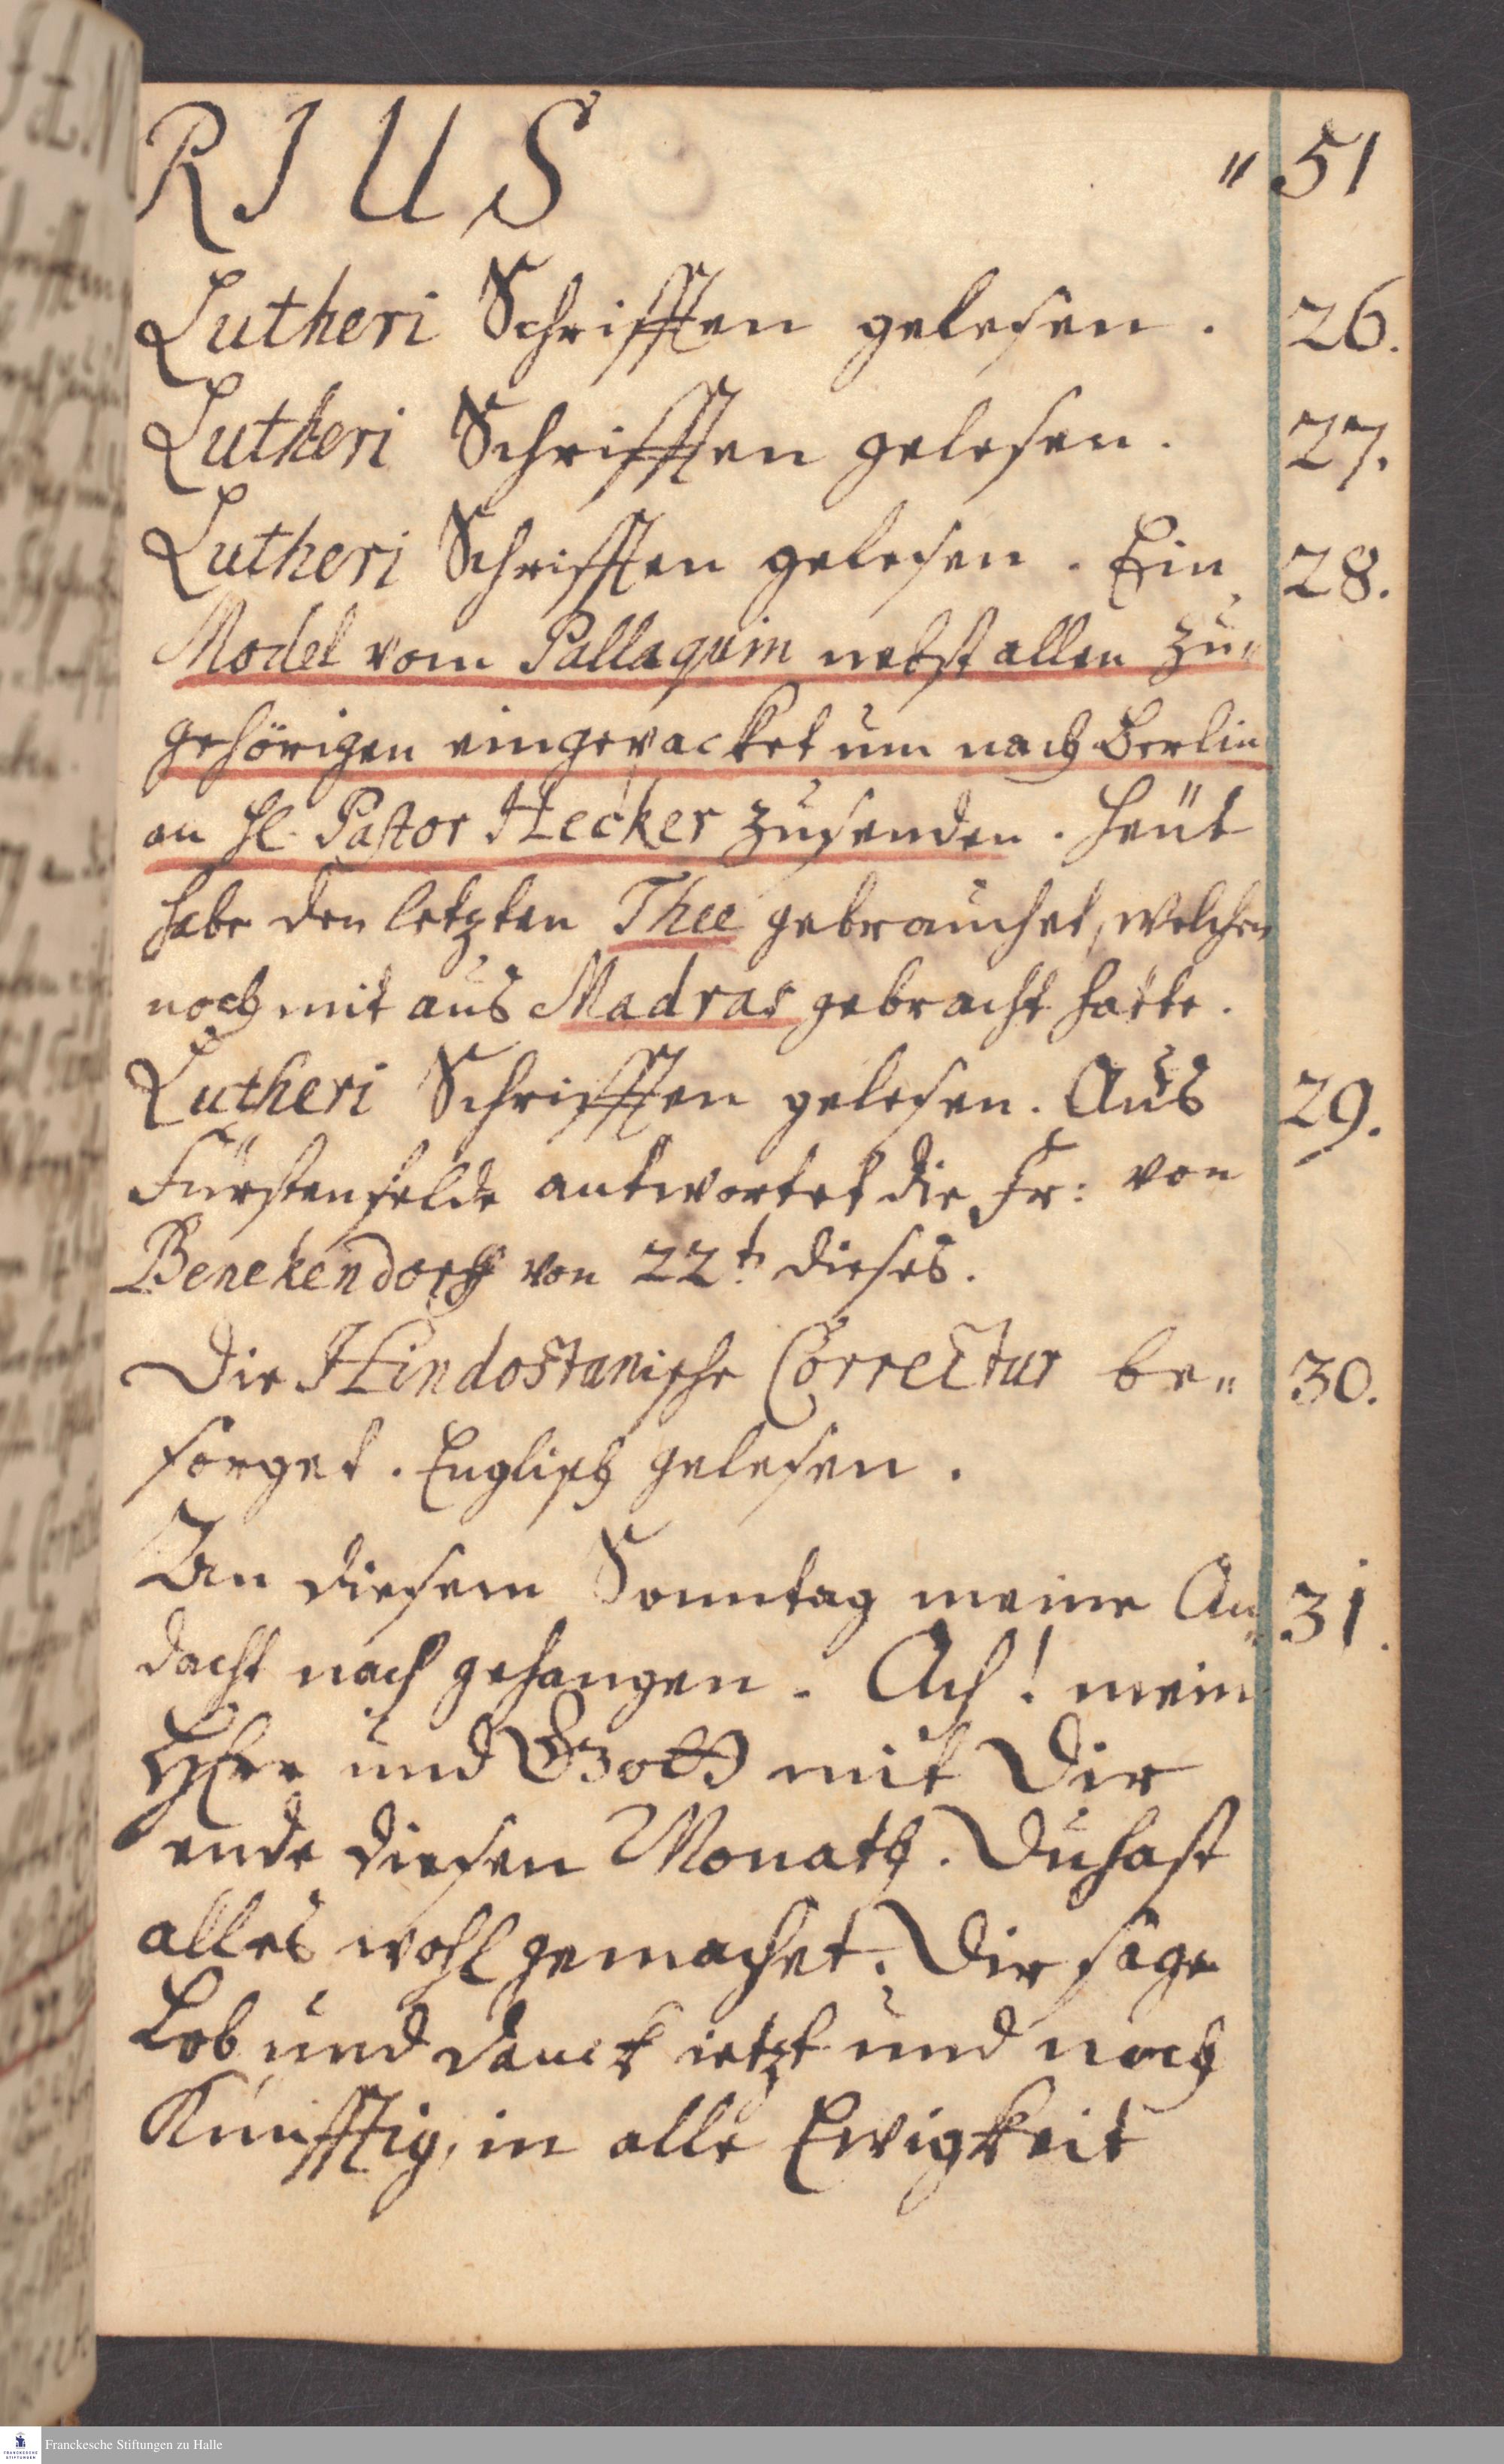 RIUS " 51
Lutheri Schrifften gelesen. 26.
Lutheri Schrifften gelesen. 27.
Lutheri Schrifften gelesen. Ein 28.
Model vom Pallaquin nebst allen zu„
gehörigen eingepacket um nach Berlin
an H. Pastor Hecker zusenden. Heüt
habe den letzten Thee gebrauchet, welchen
noch mit aus Madras gebracht hatte.
Lutheri Schrifften gelesen. Aus 29.
Fürstenfelde antwortet die Fr: von
Benekendorff von 22t. dieses.
Die Hindostanische Correctur be„ 30.
sorget. Englisch gelesen.
An diesem Sonntag meine An„ 31.
dacht nach gehangen. Ach! mein
HErr und Gott mit Dir
ende diesen Monath. Du hast
alles wohl gemachet. Dir sage
Lob und Danck ietzt und noch
Künfftig, in alle Ewigkeit
Franckesche Stiftungen zu Halle